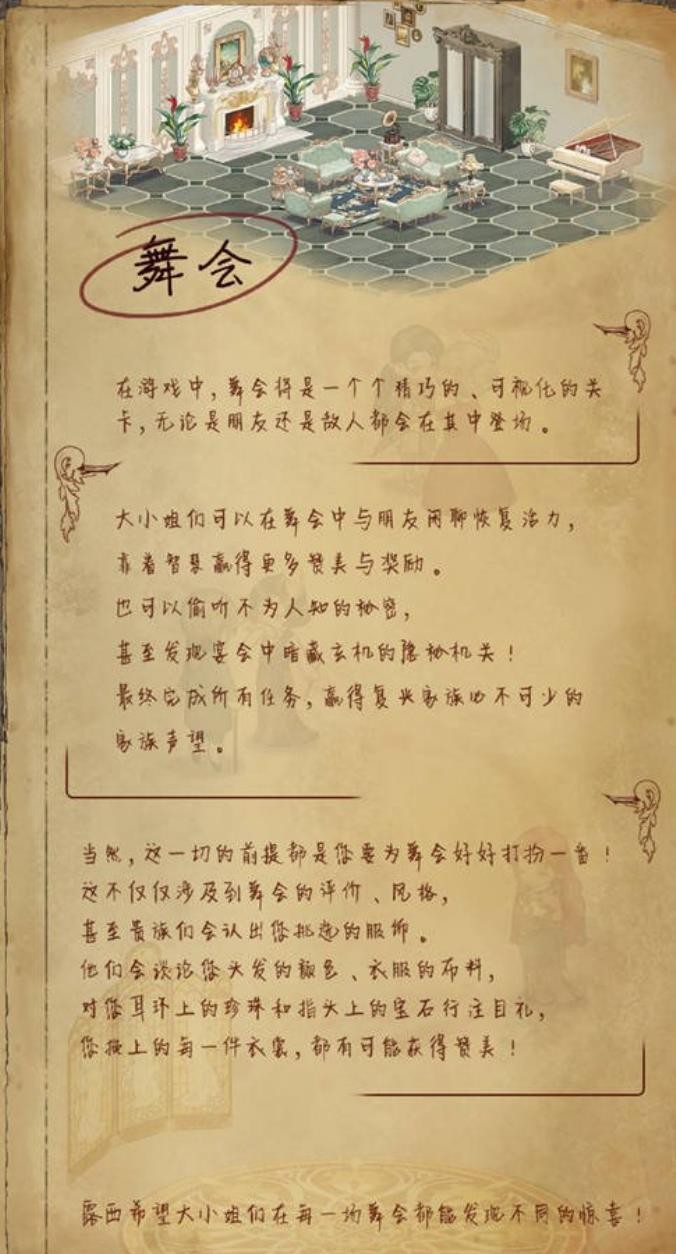 舞会
在游戏中，舞会将是一个个精巧的、可视化的关
卡，无论是朋友还是敌人都会在其中登场。
大小姐们可以在舞会中与朋友闲聊恢复活力，
靠着智慧赢得更多赞美与奖励。
也可以偷听不为人知的秘密，
甚至发现宴会中暗藏玄机的隐秘机关！
最终完成所有任务，赢得复兴家族必不可少的
家族声望。
当然，这一切的前提都是您要为舞会好好打扮一番！
这不仅仅涉及到舞会的评价、风格，
甚至贵族们会认出您挑选的服饰。
他们会谈论您头发的颜色、衣服的布料，
对您耳环上的珍珠和指头上的宝石行注目礼，
您换上的每一件衣裳，都有可能获得赞美！
露西希望大小姐们在每一场舞会都能发现不同的惊喜！